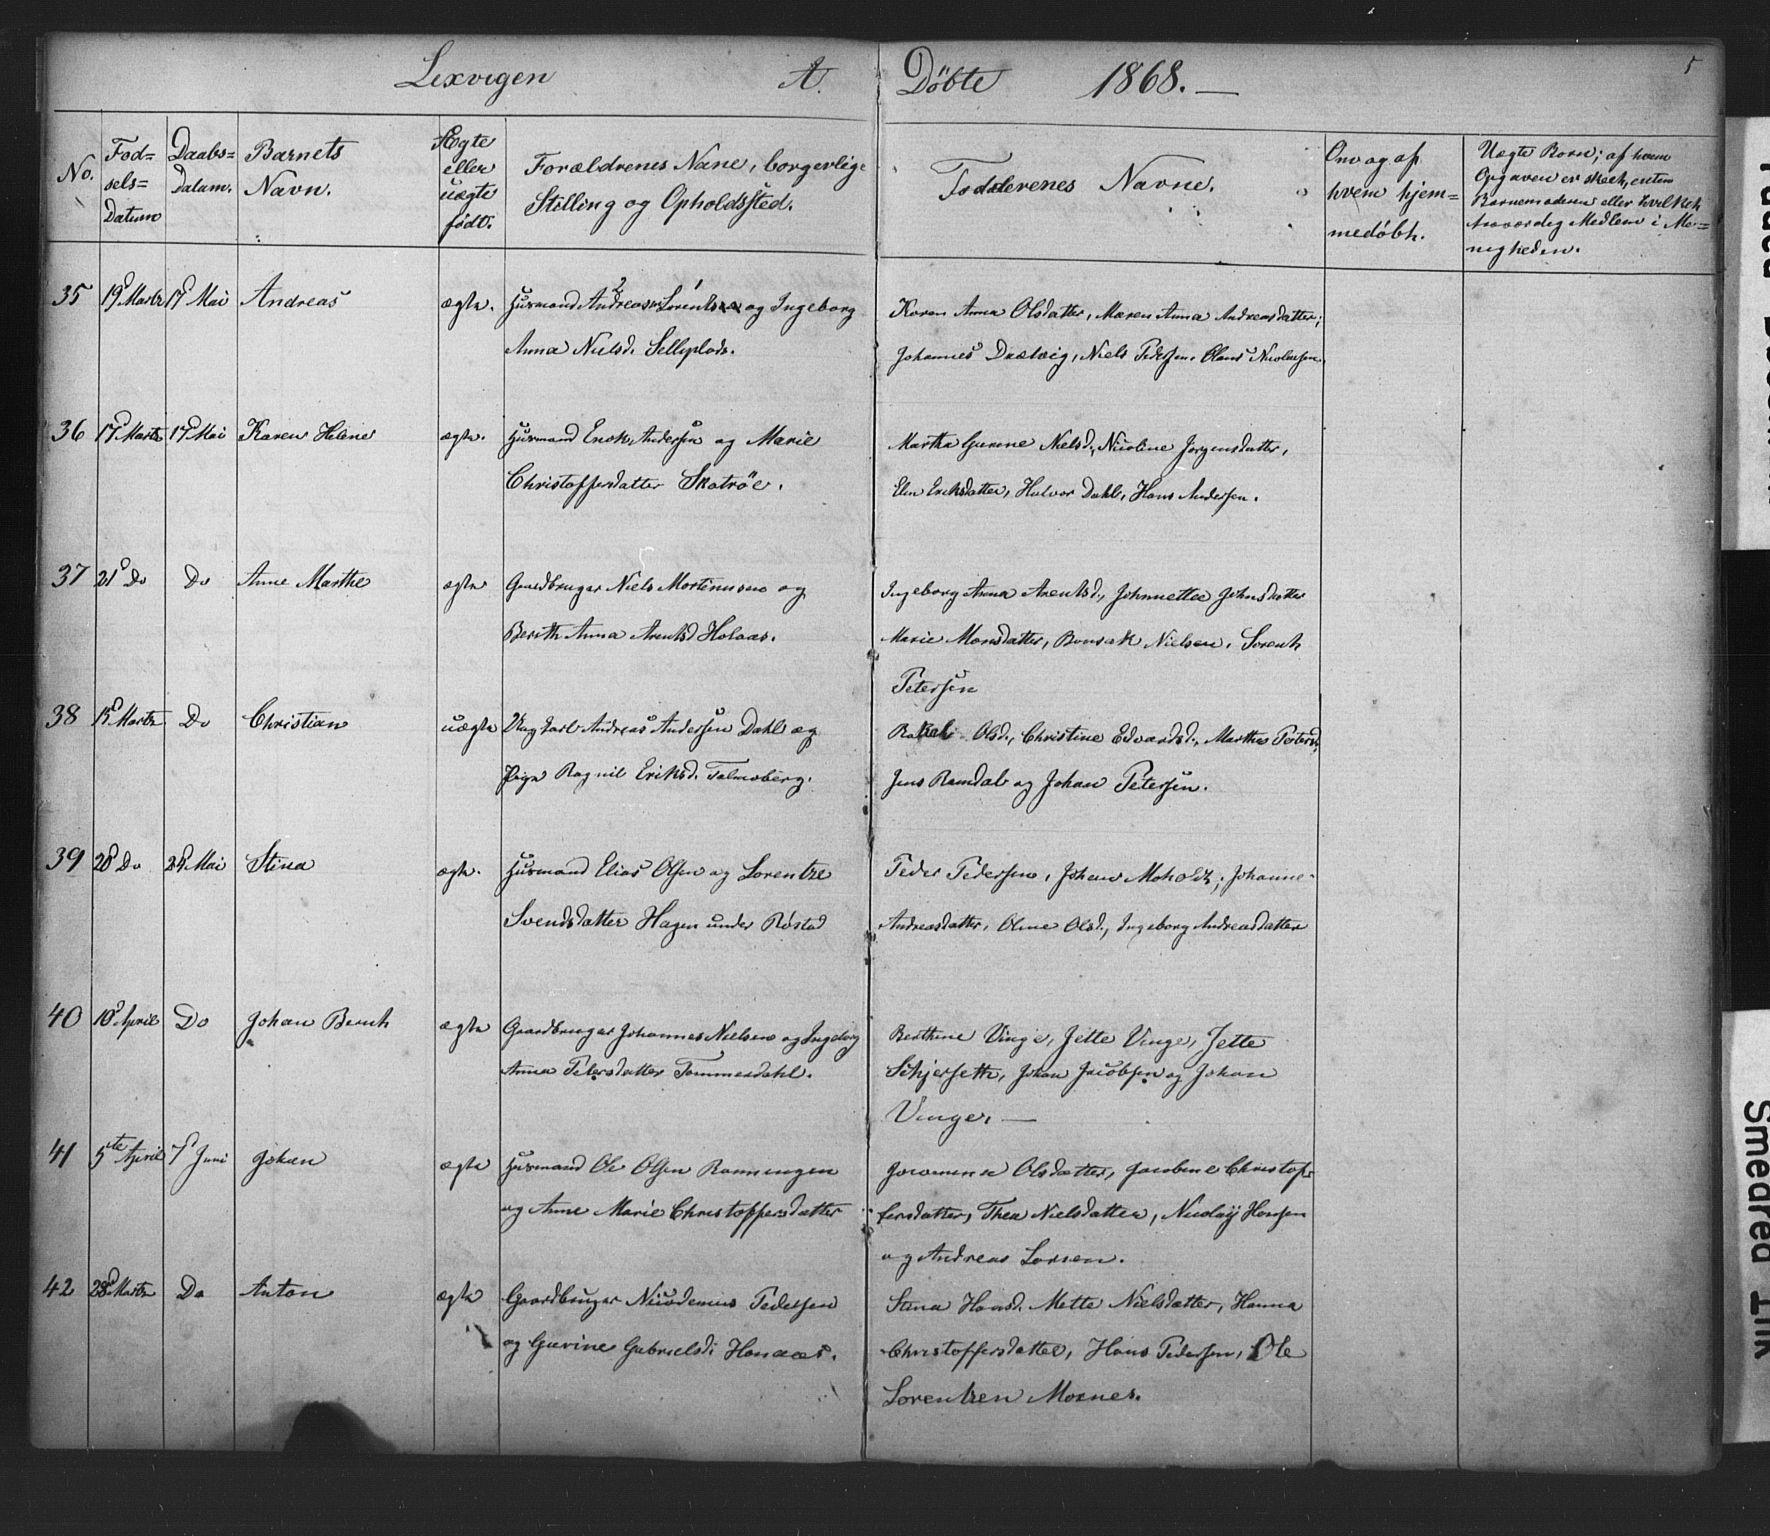 Lexvigen A. Döbte 1868.— 5
No. Fød= sels= Datum Daabs= Datum. Barnets Navn. Ægte eller uægte født. Forældrenes Navne, borgerlige Stilling og Opholdssted. Fadderenes Navne. Om og af hvem hjem= medöbt. Uægte Born; af hvem Opgaven er skeet, enten Barnemoderen eller hvilket troværdig Medlem i Me= nigheden.
35 19 Martz 17 Mai Andreas ægte. Husmand Andreas Lorents og Ingeborg
Anna Nielsd. Selliplads.
Karen Anna Olsdatter, Maren Anna Andreasdatter,
Johannes Dalvig, Niels Pedersen, Olaus Nicolaisen
36 17 Martz 17 Mai Karen Helene ægte. Husmand Enok Andersen og Marie
Christoffersdatter Skatröe.
Martha Gurine Nielsd., Nicoline Jørgensdatter,
Elen Eriksdatter, Halvor Dahl, Hans Andersen.
37 21 Do Do Anne Marthe ægte Gaardbruger Niels Mortinusen og
Berith Anna Arntsd Holaas.
Ingeborg Anna Arentsd., Johnnette Johnsdatter
Marie Monsdatter, Bonsak Nielsen, Lorents
Petersen
38 15 Martz Do Christian uægte Ung karl Andreas Andersen Dahl og
Pige Ragnil Eriksd. Talmoberg.
Rakel Olsd., Christine Edvardsd., Marthe Petersd.
Jens Ramdal og Johan Petersen.
39 20 Do 24 Mai Stina ægte. Husmand Elias Olsen og Lorentze
Svendsdatter Hagen under Røstad
Peder Pedersen, Johan Moholdt, Johanne
Andreasdatter, Oline Olsd., Ingeborg Andreasdatter
40 10 April Do Johan Bernt ægte Gaardbruger Johannes Nielsen og Ingeborg
Anna Petersdatter Tommesdahl.
Berthine Vinge, Jette Vinge, Jette
Schjerseth, Johan Jacobsen og Johan
Vinger.—
41 5te April 7 Juni Johan ægte Husmand Ole Olsen Ranningen
og Anne Marie Christoffersdatter
Olsdatter, Jacobine Christof=
fersdatter, Thea Nielsdatter, Nicolaÿ Hansen
og Andreas Larsen.
42 28 Martz Do Anton ægte Gaardbruger Nicodemus Pedersen
og Gurine Gabrielsd. Hanaas.
Stina Hansd. Mette Nielsdatter, Hanna
Christoffersdatter, Hans Pedersen, Ole
Lorentzen Moanes.
Smedred Ink